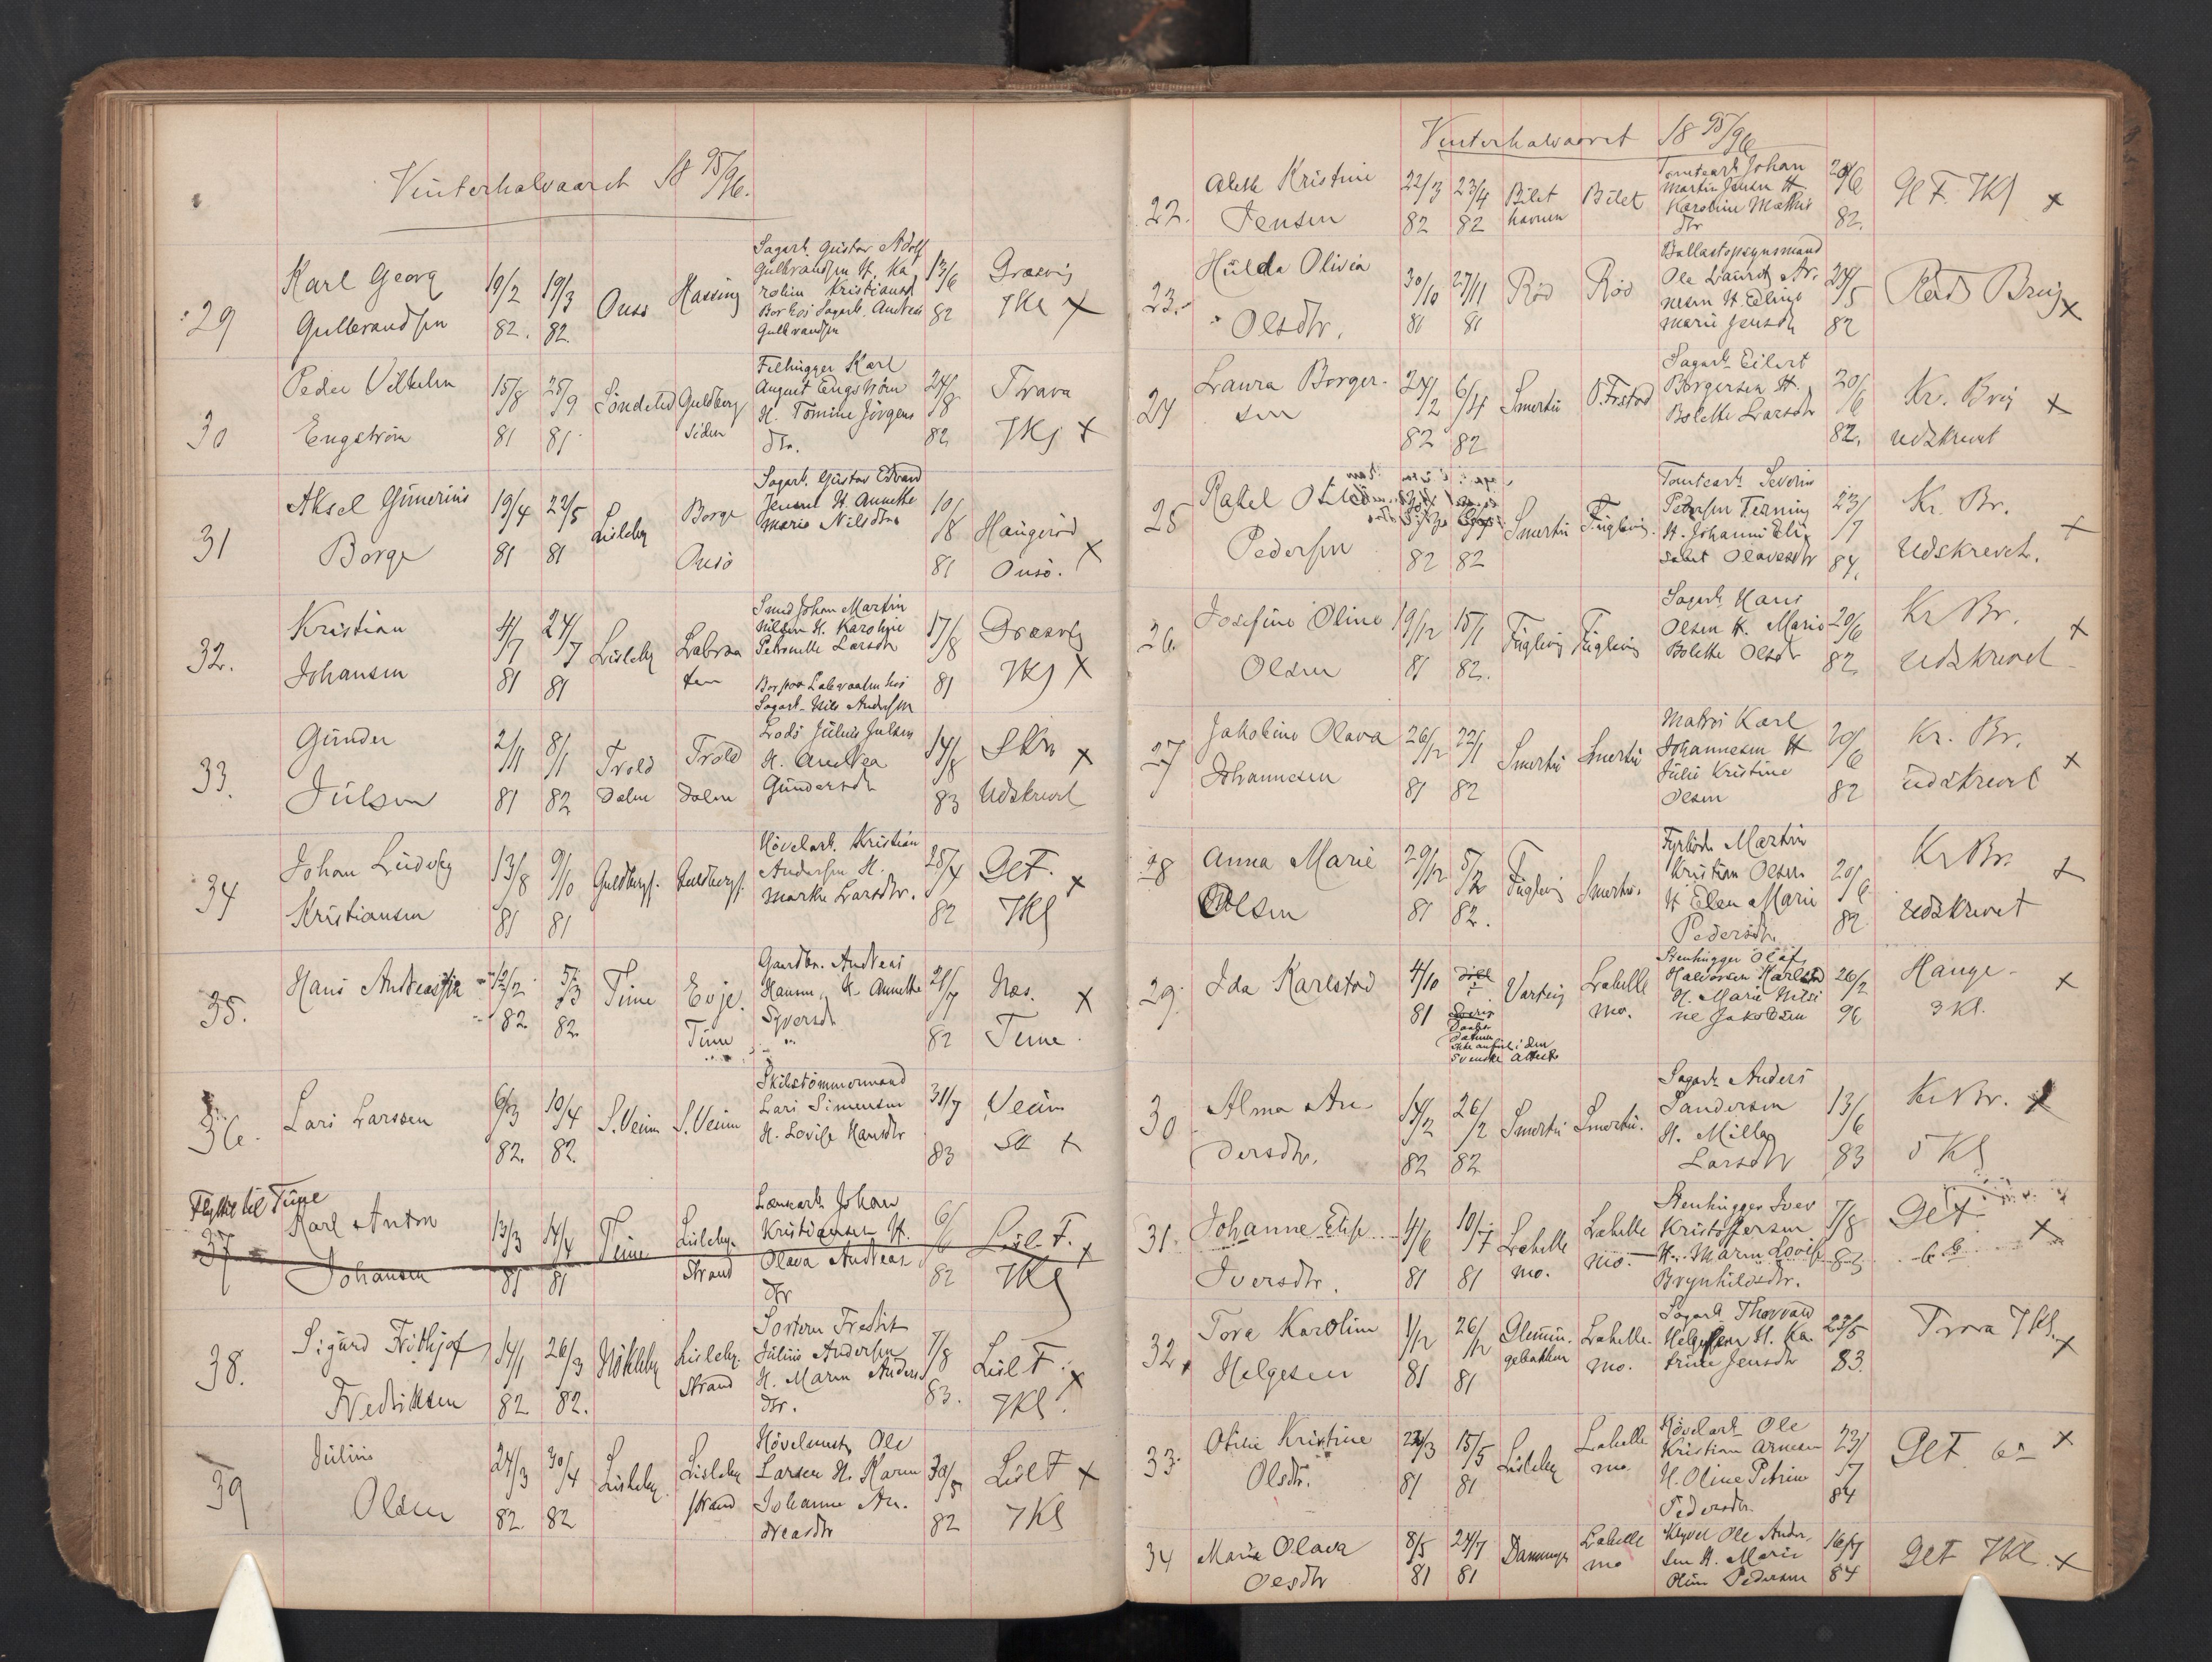 Vinterhalvaaret 18 95/96.
29
Karl Georg
Gulbrandsen
19/2 82.
19/3 82.
Onsö
Hassing
Sagarb. Gustav Adolf
Gulbrandsen H. Ka
roline Kristiansd
Bor hos Sagarb. Andreas
Gulbrandsen
13/6 82
Græsvig
7Kl x
30
Peder Vilhelm
Engström
15/8 81
25/9 81.
Söndeled
Guldberg
siden
Filhugger Karl
August Engström
H. Tomine Jörgens
dtr.
24/8 82
Trara
7Kl x
31
Aksel Gunerius
Borge
19/4 81
22/5 81
Lisleby
Borge
Onsö
Sagarb. Gustav Edvard
Jensen H. Annette
Marie Nilsdtr
10/8 81
Haugeröd
Onsö. x
32.
Kristian
Johansen
4/7 81
24/7 81
Lisleby
Labraa
ten
Smed Johan Martin
Nilsen H. Karoline
Petronelle Larsdtr
Bor paa Labraaten hos
Sagarb. Nils Andersen
17/8 81
Græsvig
7Kl x
33.
Gunder
Julsen
2/11 81
8/1 82
Trold
dalen
Trold
dalen
Lods Julius Julsen
H. Andrea
Gundersdtr
14/8 83
Udskrevet x
34
Johan Ludvig
Kristiansen
13/8 81
9/10 81
Guldbergs.
Guldbergs.
Hövelarb. Kristian
Andersen H.
Marthe Larsdtr.
25/4 82
Gl.F.
7Kl x
35.
Hans Andreas
12/2 82
5/3 82.
Tune
Evje.
Tune
Gaardbr. Andreas
Hansen, H. Annette
Syversdtr
21/7 82
Næs.
Tune x
36.
Lars Larssen
6/3 82.
10/4 82.
S. Veum
S. Veum
Skibstömmermand
Lars Simensen
H. Lovise Hansdtr
31/7 83
Veum
x
Flyttet til Tune
37
Karl Anton
Johansen
13/3 81
14/4 81
Tune
Lisleby.
Strand
Lænsearb. Johan
Kristiansen H.
Olava Andreas
dtr
6/6 82
Lisl. F.
7Kl x
38.
Sigurd Frithjof
Fredriksen
14/1 82
26/3 82.
Nökleby
Lisleby.
Strand
Sorterer Fredrik
Julius Andersen
H. Maren Anders
dtr.
7/8 83.
Lisl F.
7Kl. x
39
Julius
Olsen
24/3 82.
30/4 82
Lisleby.
Lisleby
strand
Hövelmest. Ole
Larsen H. Karen
Johanne An.
dreasdtr
30/5 82
Lisl F x
7Kl
Vinterhalvaaret 18 95/96
22.
Aleth Kristine
Jensen
22/3 82
23/4 82
Bilet
havnen
Bilet
Tomtearb Johan
Martin Jensen H.
Karoline Mathis
dtr
20/6 82.
Gl F. 7Kl x
23.
Hulda Olivia
Olsdtr.
30/10 81
27/11 81
Röd
Röd
Ballastopsynsmand
Ole Lauritz Ar.
nesen H. Edlings
Marie Jensdtr
24/5 82
Röds Brug x
24
Laura Borger-
sen
24/2 82
6/4 82
Smertu
Ö. Fr.stad
Sagarb Eilert
Borgersen H.
Bolette Larsdtr
20/6 82.
Kr. Brug x
udskrevet
25
Rakel Otilie
Pedersen
82
82
Smertu
Fuglevig.
Tomtearb Severin
Pedersen Fieming
H. Johanne Eli.
sabet Olavesdtr
23/7 84.
Kr. Br.
Udskrevet. x
26.
Josefine Oline
Olsen
19/12 81
15/1 82.
Fuglevig
Fuglevig
Sagarb Hans
Olsen H. Marie
Bolette Olsdtr
20/6 82
Kr Br. x
udskrevet
27
Jakobine Olava
Johannesen
26/12 81
22/1 82
Smertu
Smertu
Matros Karl
Johannesen H
Julie Kristine
Olsen
20/6 82
Kr. Br.
udskrevet x
28
Anna Marie
Olsen
29/12 81
5/2 82.
Fuglevig
Smertu.
Fyrböder Martin
Kristian Olsen
H Elen Marie
Pedersdtr.
20/6 82
Kr Br. x
udskrevet
29.
Ida Karlstad
4/10 81
Daabs
datum
ikke anfört i den
svenske attest
Varteig
Labelle
mo.
Stenhugger Olaf
Halvorsen Karlstad
H. Marie Nilsi
ne Jakobsen
26/2 96
Hauge-
3 Kl. x
30
Alma An
dersdtr.
14/2 82
26/2 82
Smertu
Smertu.
Sagarb Anders
Sandersen
H. Milla
Larsdtr
13/6 83
Kr Br. x
5 Kl
31.
Johanne Elise
Iversdtr.
4/6 81
10/7 81
Labelle
mo.
Labelle
mo.
Stenhugger Iver
Kristoffersen
H. Maren Lovise
Brynhildsdtr.
7/8 83
Gl.F. x
32.
Tora Karoline
Helgesen
1/12 81
26/12 81
Glemmin.
gebakken
Labelle.
mo.
Sagarb Thorvald
Helgesen H. Ka.
trine Jensdtr
23/5 83.
Trara 7Kl. x
33.
Otilie Kristine
Olsdtr.
23/3 81
15/5 81
Lisleby
Labelle
mo
Hövelarb Ole
Kristian Arnesen
H. Oline Petrine
Pedersdtr.
23/7 84
Gl F x
34
Marie Olava
Olsdtr
8/5 81
24/7 81
Dammyr
Labelle
mo
Klyver Ole Ander.
sen H. Marie
Oline Pedersen
16/7 84
Gl F 7Kl. x